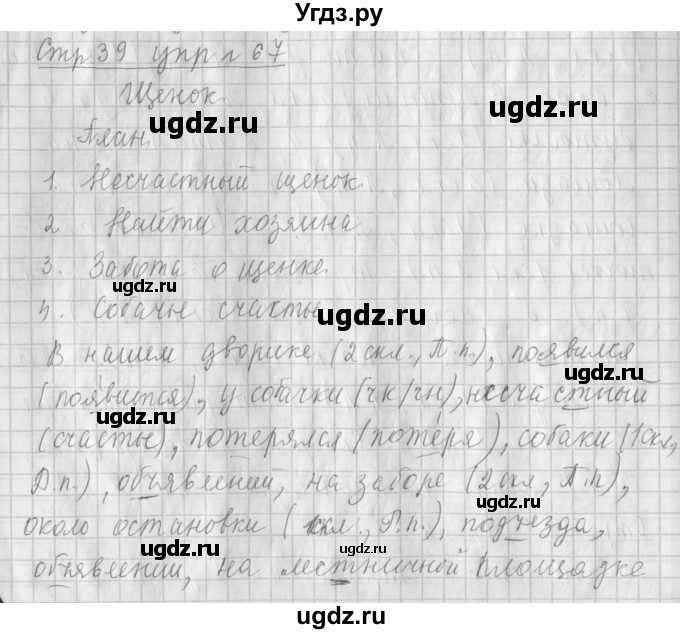 Угдз.ру
Стр 39 упр № 67
Щенок.
План.
1. Несчастный щенок.
2 Найти хозяина
3. Забота о щенке.
4. Собачье счастье
В нашем дворике (2 скл., П.п.), появился
(появится), у собачки (чк/чн), несчастный
(счастье), потерялся (потеря), собаки (1 скл,
Д.п.), объявлений, на заборе (2 скл, П.п),
около остановки (скл., Р.п.), подъезда,
объявлении, на лестничной площадке
ugdz.ru
ugdz.ru
ugdz.ru
ugdz.ru
ugdz.ru
ugdz.ru
ugdz.ru
ugdz.ru
ugdz.ru
ugdz.ru
ugdz.ru
ugdz.ru
ugdz.ru